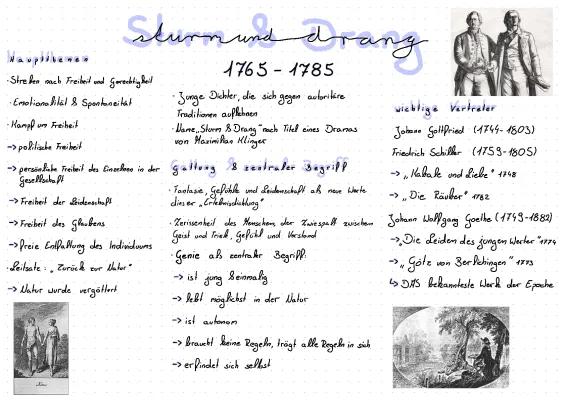 Sturm & Drang
sturm und drang
1765 - 1785
Hauptthemen
· Streben nach Freiheit und Gerechtigkeit
· Emotionalität & Spontaneität
· Kampf um Freiheit
→ politische Freiheit
→ persönliche Freiheit des Einzelnen in der
Gesellschaft
→ Freiheit der Leidenschaft
→ Freiheit des Glaubens
→ freie Entfaltung des Individuums
· Leitsatz: „Zurück zur Natur"
→ Natur wurde vergöttert
· Junge Dichter, die sich gegen autoritäre
Traditionen auflehnen
· Name „Sturm & Drang" nach Titel eines Dramas
von Maximilian Klinger
Gattung & zentraler Begriff
· Fantasie, Gefühle und Leidenschaft als neue Werte
dieser „Erlebnisdichtung"
· Zerissenheit des Menschen, der Zwiespalt zwischen
Geist und Trieb, Gefühl und Verstand
· Genie als zentraler Begriff:
→ ist jung & einmalig
→ lebt möglichst in der Natur
→ ist autonom
→ braucht keine Regeln, trägt alle Regeln in sich
→ erfindet sich selbst
wichtige Vertreter
Johann Gottfried (1744-1803)
Friedrich Schiller (1759-1805)
→ „Kabale und Liebe" 1748
→ „Die Räuber" 1782
Johann Wolfgang Goethe (1749-1882)
→ „Die Leiden des jungen Werter" 1774
→ „Götz von Berlichingen" 1773
↳ DAS bekannteste Werk der Epoche